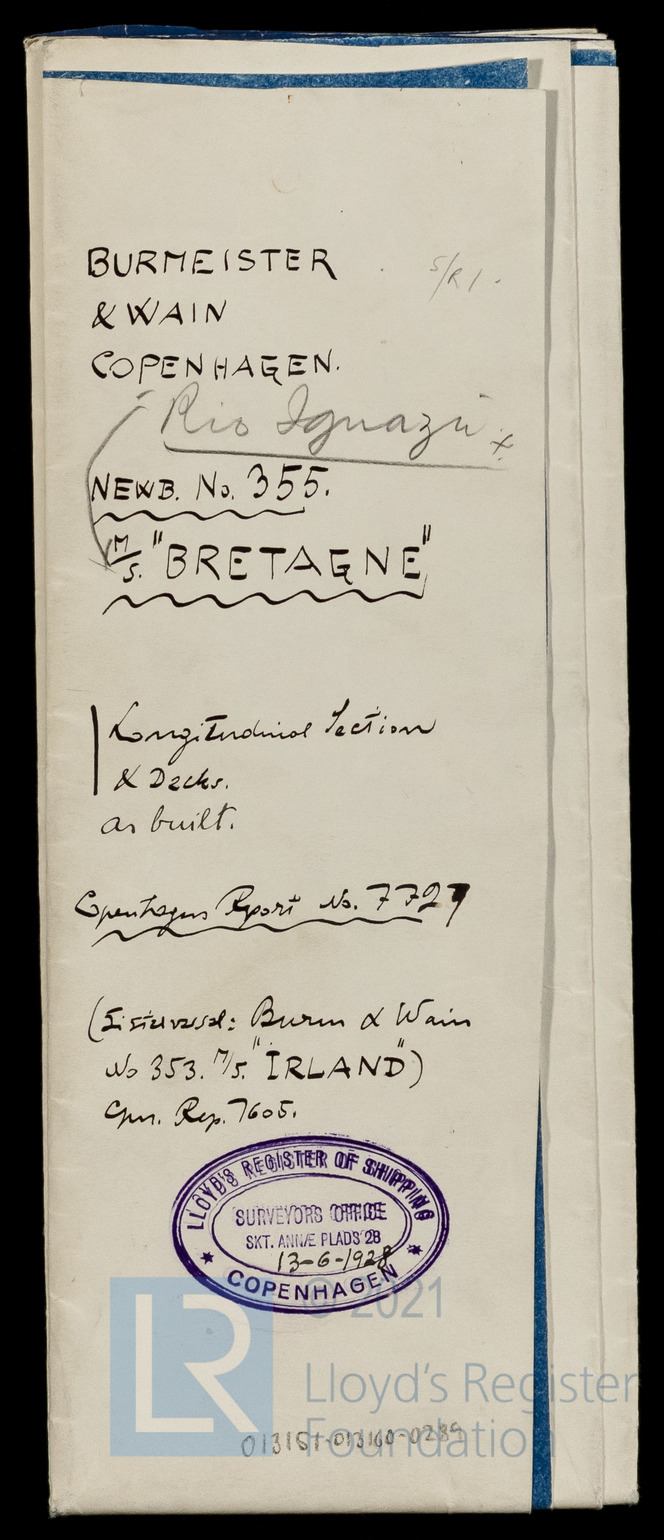 BURMEISTER
S/R 1.
& WAIN
COPENHAGEN.
Rio Ignazu x
NEWB. No. 355.
M/S. "BRETAGNE"
Longitudinal Section
& Decks.
as built.
Copenhagen Report No. 7727
(Sistervessel: Burm & Wain
No 353. M/S. "IRLAND")
Cpn. Rep. 7605.
LLOYD'S REGISTER OF SHIPPING
SURVEYORS OFFICE
SKT. ANNÆ PLADS 28
13-6-1928
COPENHAGEN
© 2021
LR
Lloyd's Register
Foundation
013151-013160-0289